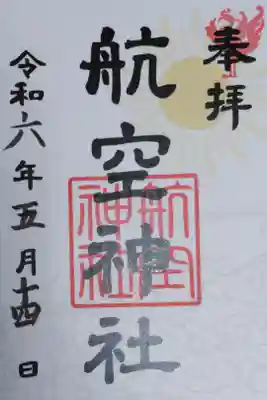 奉拝
航空神社
航空
神社
令和六年五月十四日